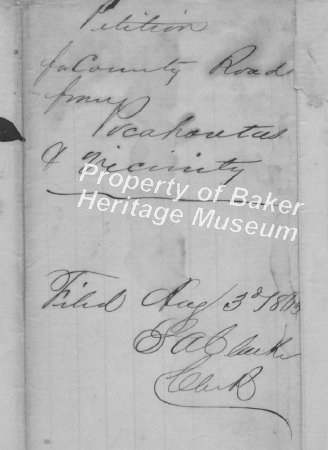 Petition
for County Road
from
Pocahontas
& Vicinity
Property of Baker
Heritage Museum
Filed Aug 3d
Clerk